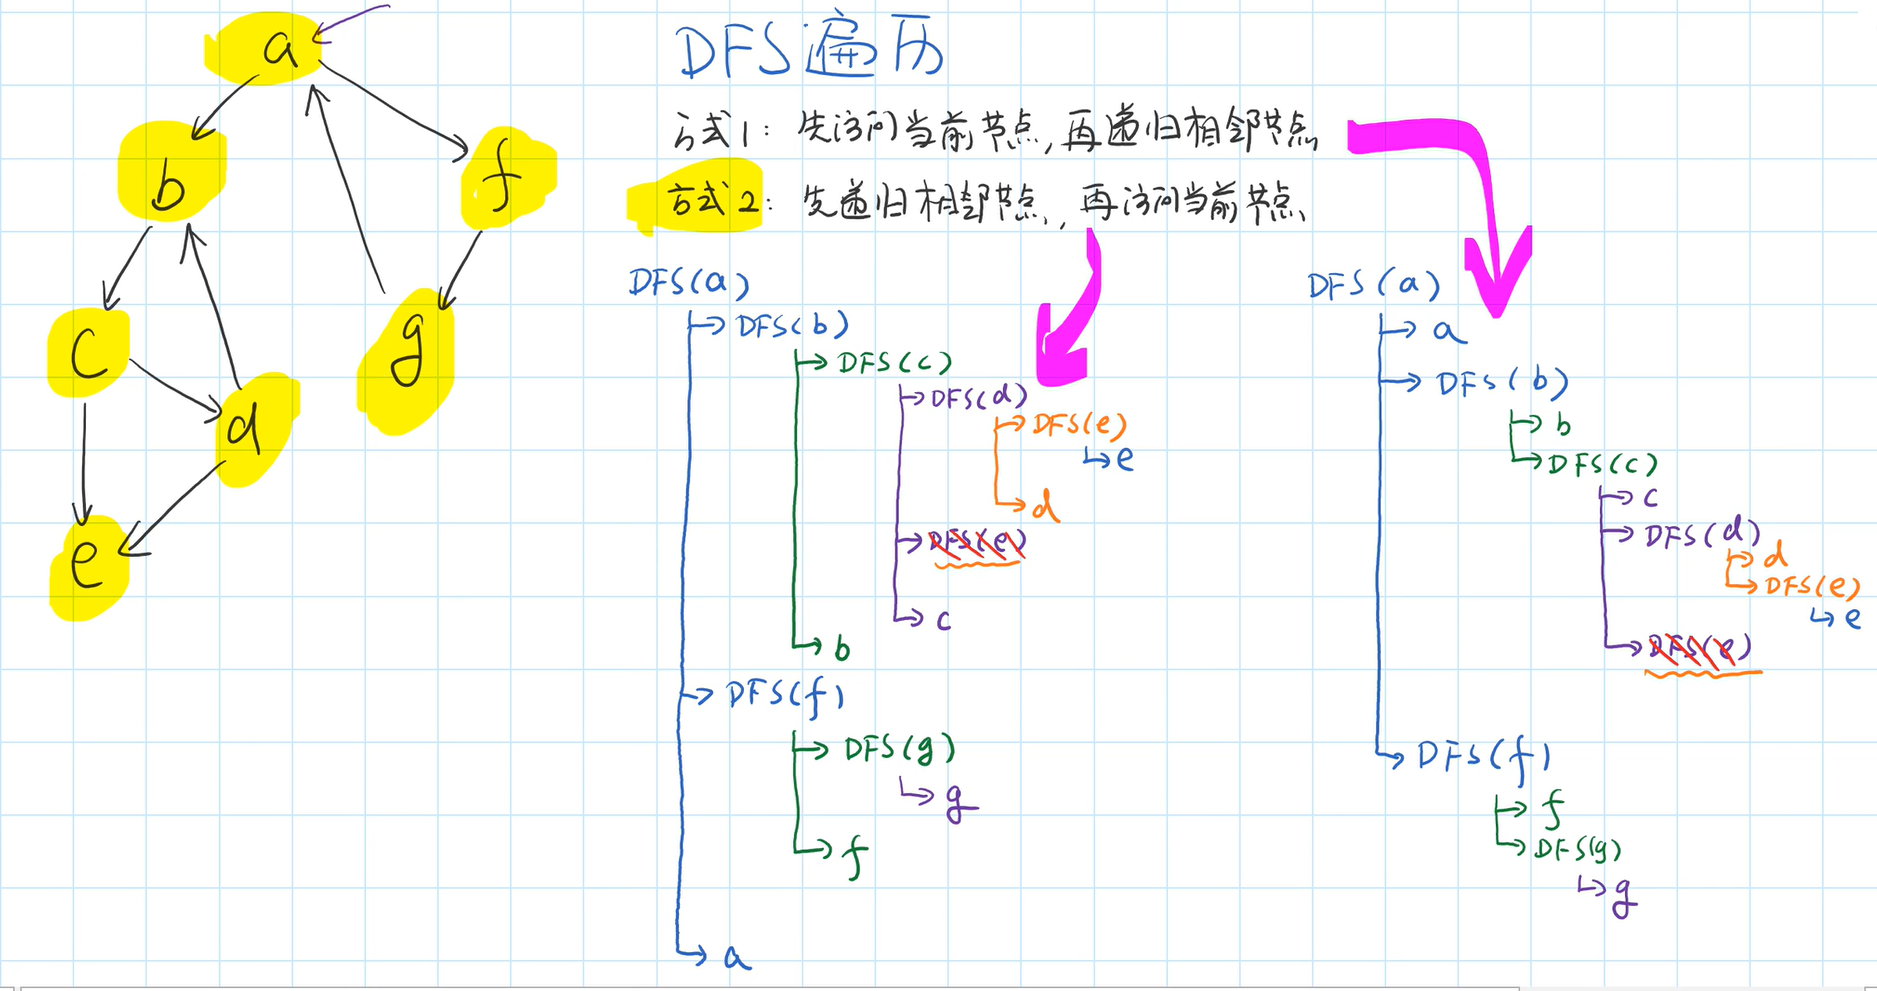 a
b
f
c
g
d
e
DFS遍历
方式1：先访问当前节点，再递归相邻节点
方式2：先递归相邻节点，再访问当前节点、
DFS(a)
DFS(b)
DFS(c)
DFS(d)
DFS(e)
e
d
DFS(e)
c
b
DFS(f)
DFS(g)
g
f
a
DFS(a)
a
DFS(b)
b
DFS(c)
c
DFS(d)
d
DFS(e)
e
DFS(e)
DFS(f)
f
DFS(g)
g